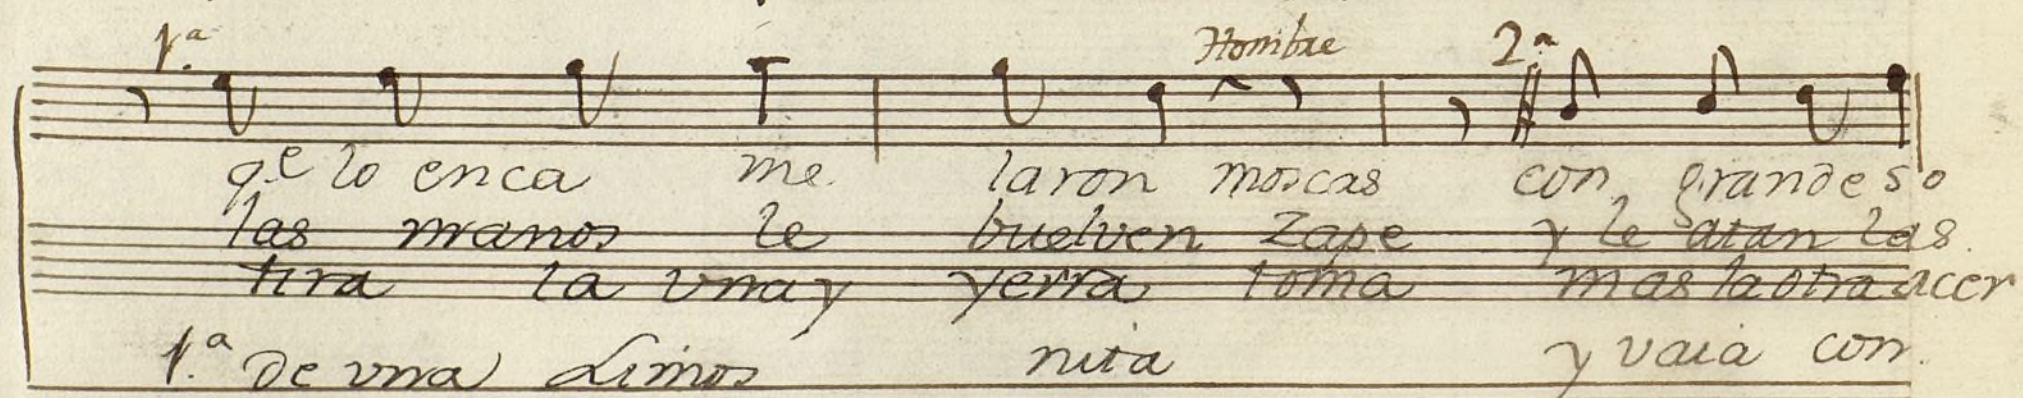 1.ª Hombre 2ª
q.e lo enca me laron moscas con grande so
las manos le buelven Zape y le atan las
tira la vna y yerra toma mas la otra acer
1.ª de vna Limos nita y vaia con